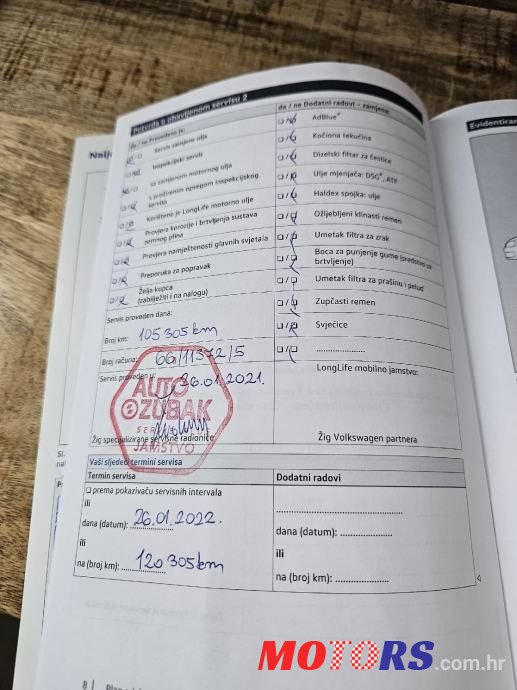 Potvrda o obavljenom servisu 2
da / ne Provedeno je:
Servis zamjene ulja
Inspekcijski servis
sa zamjenom motornog ulja
s proširenim opsegom inspekcijskog servisa
Korišteno je LongLife motorno ulje
Provjera korozije i brtvljenja sustava zemnog plina
Provjera namještenosti glavnih svjetala
Preporuka za popravak
Želja kupca
(zabilježiti i na nalogu)
Servis proveden dana:
Broj km: 105 305 km
Broj računa: 66/11372/5
Servis proveden u: 26.01.2021.
AUTO
ZUBAK
SERVIS
JAMSTVO
Žig specijalizirane servisne radionice
da / ne Dodatni radovi – zamjena:
AdBlue®
Kočiona tekućina
Dizelski filtar za čestice
Ulje mjenjača: DSG®, ATF
Haldex spojka: ulje
Ožljebljeni klinasti remen
Umetak filtra za zrak
Boca za punjenje gume (sredstvo za brtvljenje)
Umetak filtra za prašinu i pelud
Zupčasti remen
Svječice
....................
LongLife mobilno jamstvo:
Žig Volkswagen partnera
Vaši sljedeći termini servisa
Termin servisa
prema pokazivaču servisnih intervala
ili
dana (datum): 26.01.2022.
ili
na (broj km): 120 305 km
Dodatni radovi
dana (datum): ....................
ili
na (broj km): ....................
8
Evidentiran
MOTORS.com.hr